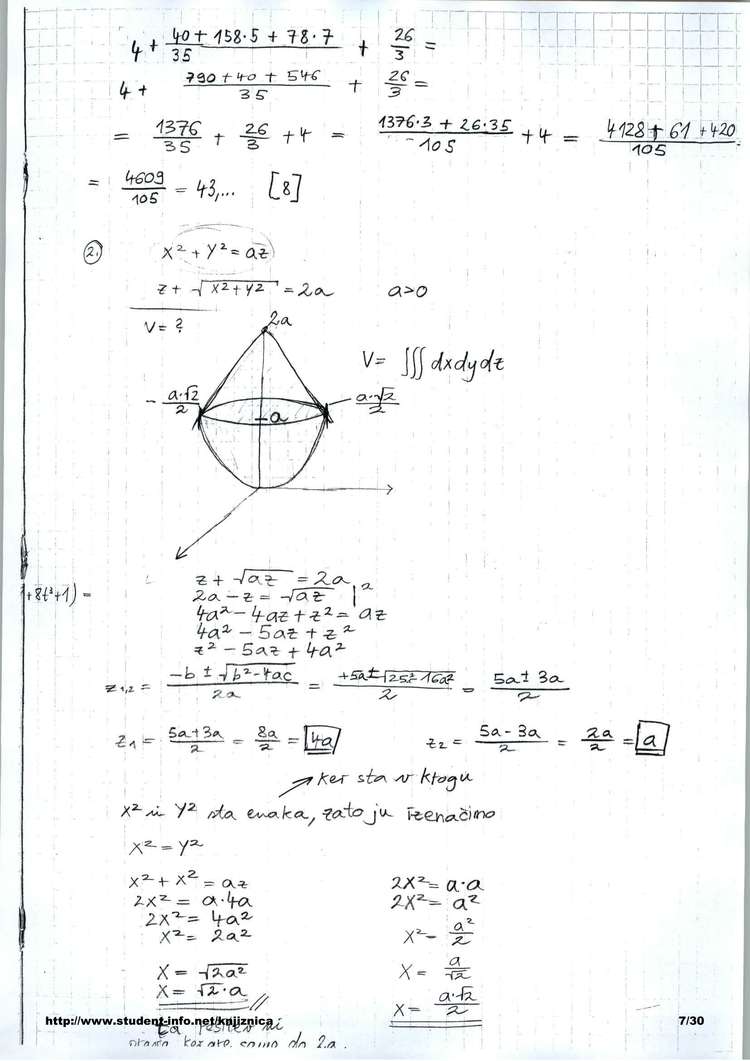 4 + (40 + 158·5 + 78·7)/35 + 26/3 =
4 + (790 + 40 + 546)/35 + 26/3 =
= 1376/35 + 26/3 + 4 = (1376·3 + 26·35)/105 + 4 = (4128 + 61 + 420)/105
= 4609/105 = 43,... [8]
2. x² + y² = az
z + √(x² + y²) = 2a a>0
V = ?
2a
V = ∭ dxdydz
- a·√2/2
a·√2/2
a
z + √az = 2a
+8t²+1) =
2a - z = √az |²
4a² - 4az + z² = az
4a² - 5az + z²
z² - 5az + 4a²
z1,2 = (-b ± √(b² - 4ac))/2a = (+5a ± √(25a² - 16a²))/2 = (5a ± 3a)/2
z1 = (5a + 3a)/2 = 8a/2 = 4a z2 = (5a - 3a)/2 = 2a/2 = a
ker sta v krogu
x² in y² sta enaka, zato ju izenačimo
x² = y²
x² + x² = az 2x² = a·a
2x² = a·4a 2x² = a²
2x² = 4a² x² = a²/2
x² = 2a²
x = √2a² x = a/√2
x = √2·a x = a·√2/2
http://www.student-info.net/knjiznica 7/30
ta rešitev ni
samo do 2a.